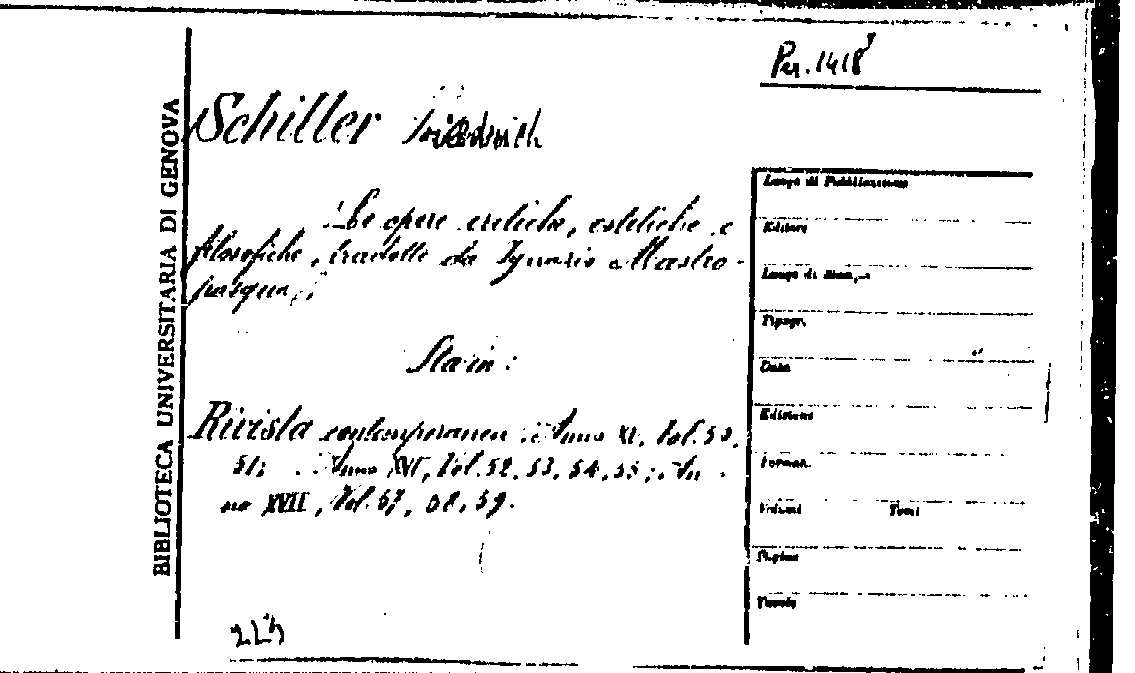 Per. 1418
BIBLIOTECA UNIVERSITARIA DI GENOVA
Schiller Friedrich
Le opere critiche, estetiche e
filosofiche, tradotte da Ignazio Mastro-
pasqua.
Sta in:
Rivista contemporanea: Anno XV, Vol. 50,
51; Anno XVI, Vol. 52, 53, 54, 55; An-
no XVII, Vol. 57, 58, 59.
Luogo di Pubblicazione
Editore
Luogo di Stampa
Tipogr.
Data
Edizione
Formato
Volumi Tomi
Pagine
Tavole